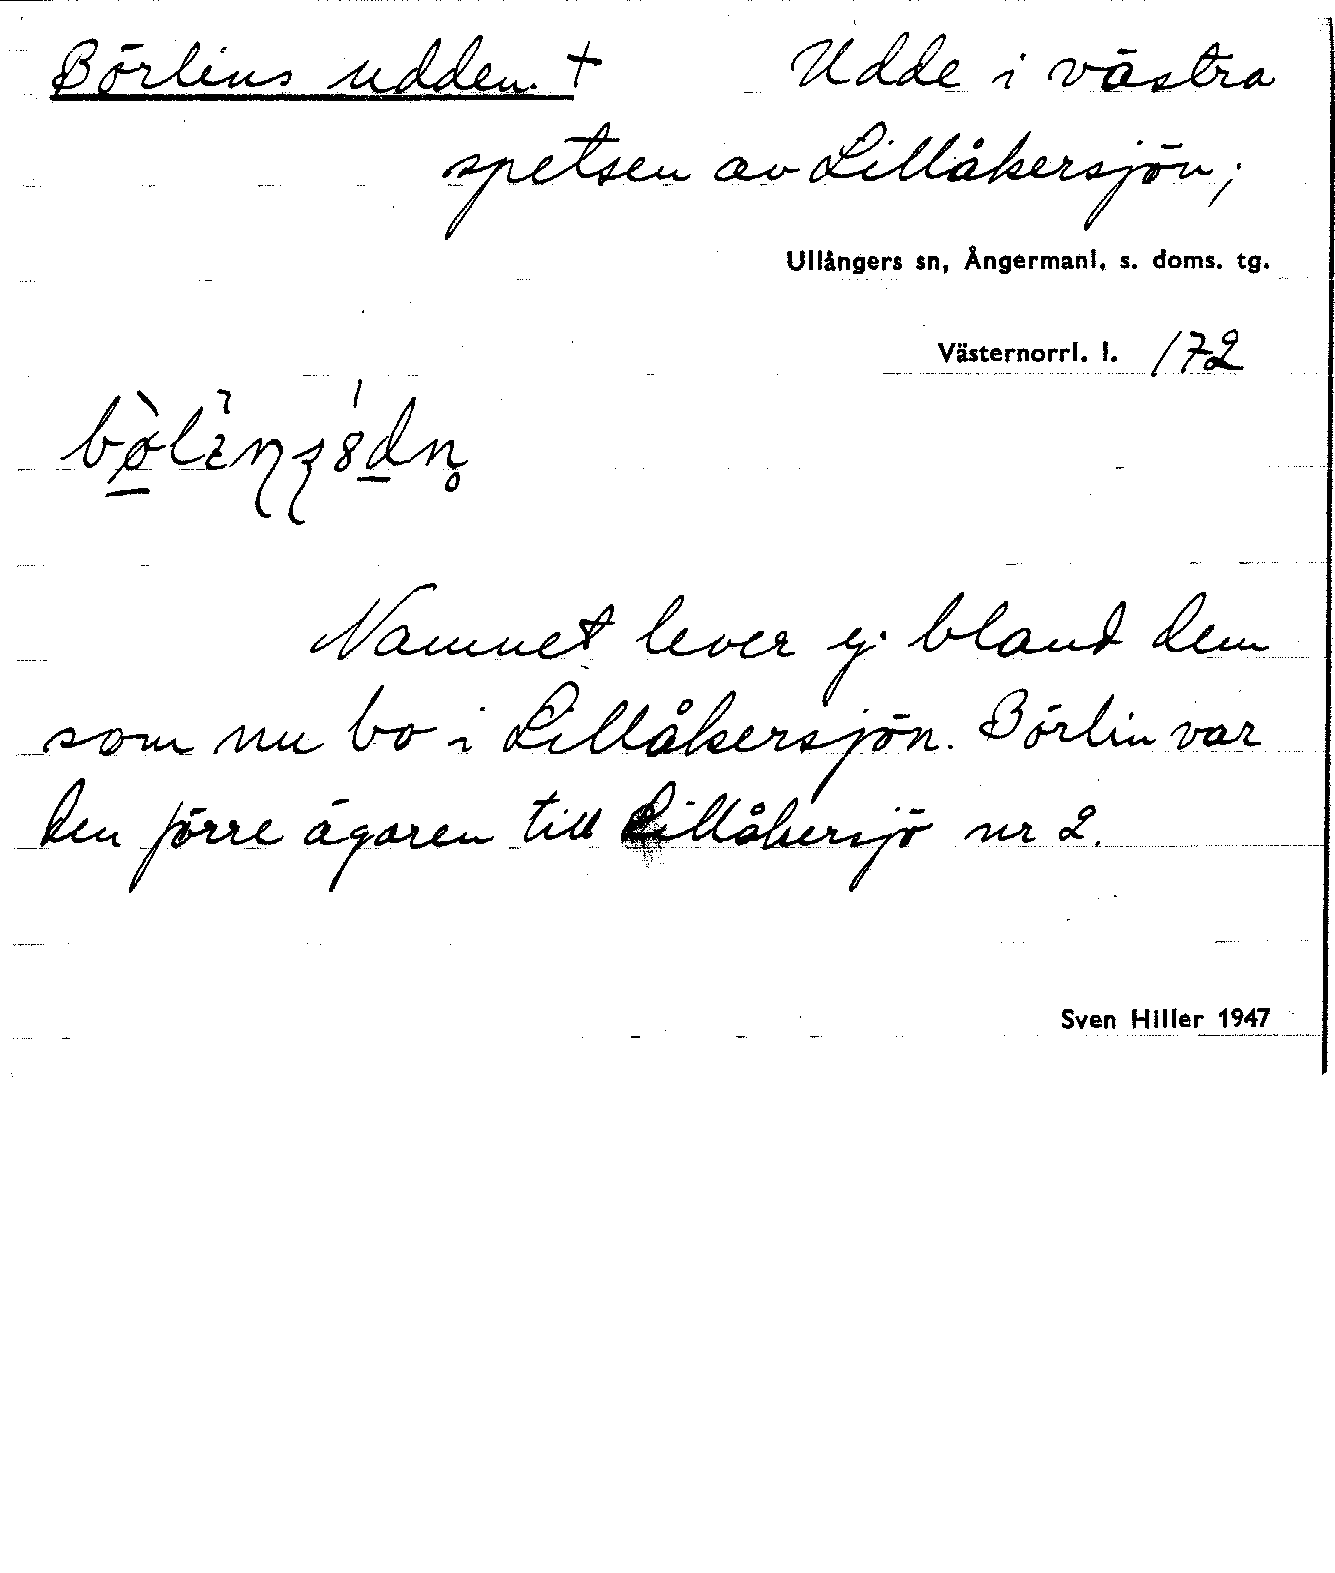 Börlins udden. + Udde i västra
spetsen av Lillåkersjön;
Ullångers sn, Ångermanl. s. doms. tg.
Västernorrl. l. 172
Namnet lever ej bland dem
som nu bo i Lillåkersjön. Börlin var
den förre ägaren till Lillåkersjö nr 2.
Sven Hiller 1947